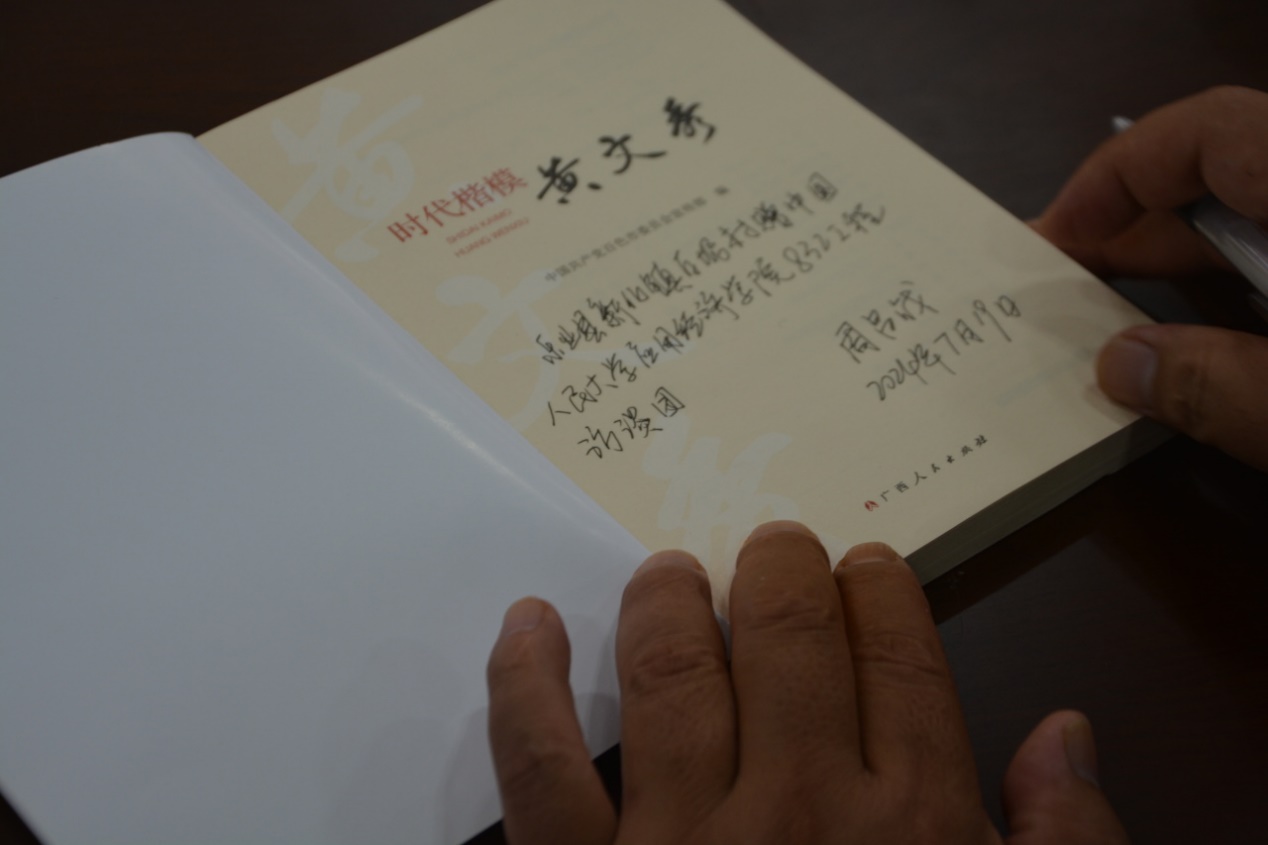 时代楷模
SHIDAI KAIMO
HUANG WENXIU
黄文秀
中国共产党百色市委员会宣传部 编
乐业县新化镇百坭村赠中国
人民大学应用经济学院8321工程
访谈团
周昌战
2024年7月19日
广西人民出版社
黄文秀